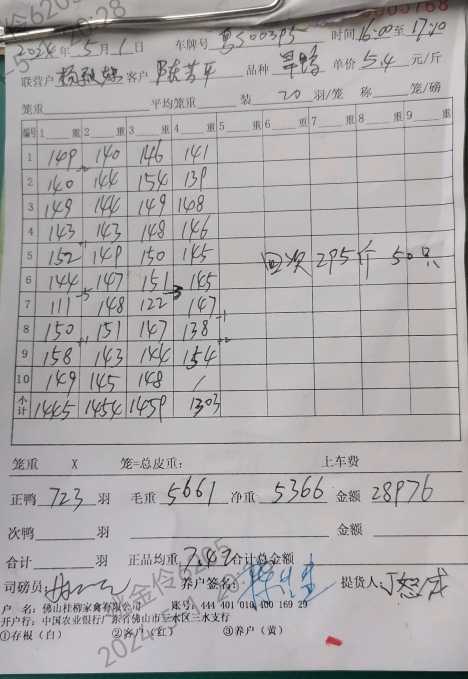 2024年5月1日 车牌号 粤S003P5 时间16:00至17:10
联营户 客户 陈芳平 品种 旱鸭 单价 5.4 元/斤
笼重 平均笼重 装 20 羽/笼 称 笼/磅
编号 1 重 2 重 3 重 4 重 5 重 6 重 7 重 8 重 9 重
1 149 140 146 141
2 140 144 154 139
3 149 144 149 148
4 143 143 148 146
5 152 149 150 145
回次 295斤 50只
6 144 147 151 145
7 111 148 122 147
8 150 151 147 138
9 158 143 144 154
10 149 145 148 /
小计 1445 1454 1459 1303
笼重 X 笼=总皮重: 上车费
正鸭 723 羽 毛重 5661 净重 5366 金额 28976
次鸭 羽 金额
合计 羽 正品均重 7.42 合计总金额
司磅员: 养户签名: 提货人:
户 名: 佛山桂柳家禽有限公司 账号: 444 401 010 400 169 29
开户行: 中国农业银行广东省佛山市三水区三水支行
①存根(白) ②客户(红) ③养户(黄)